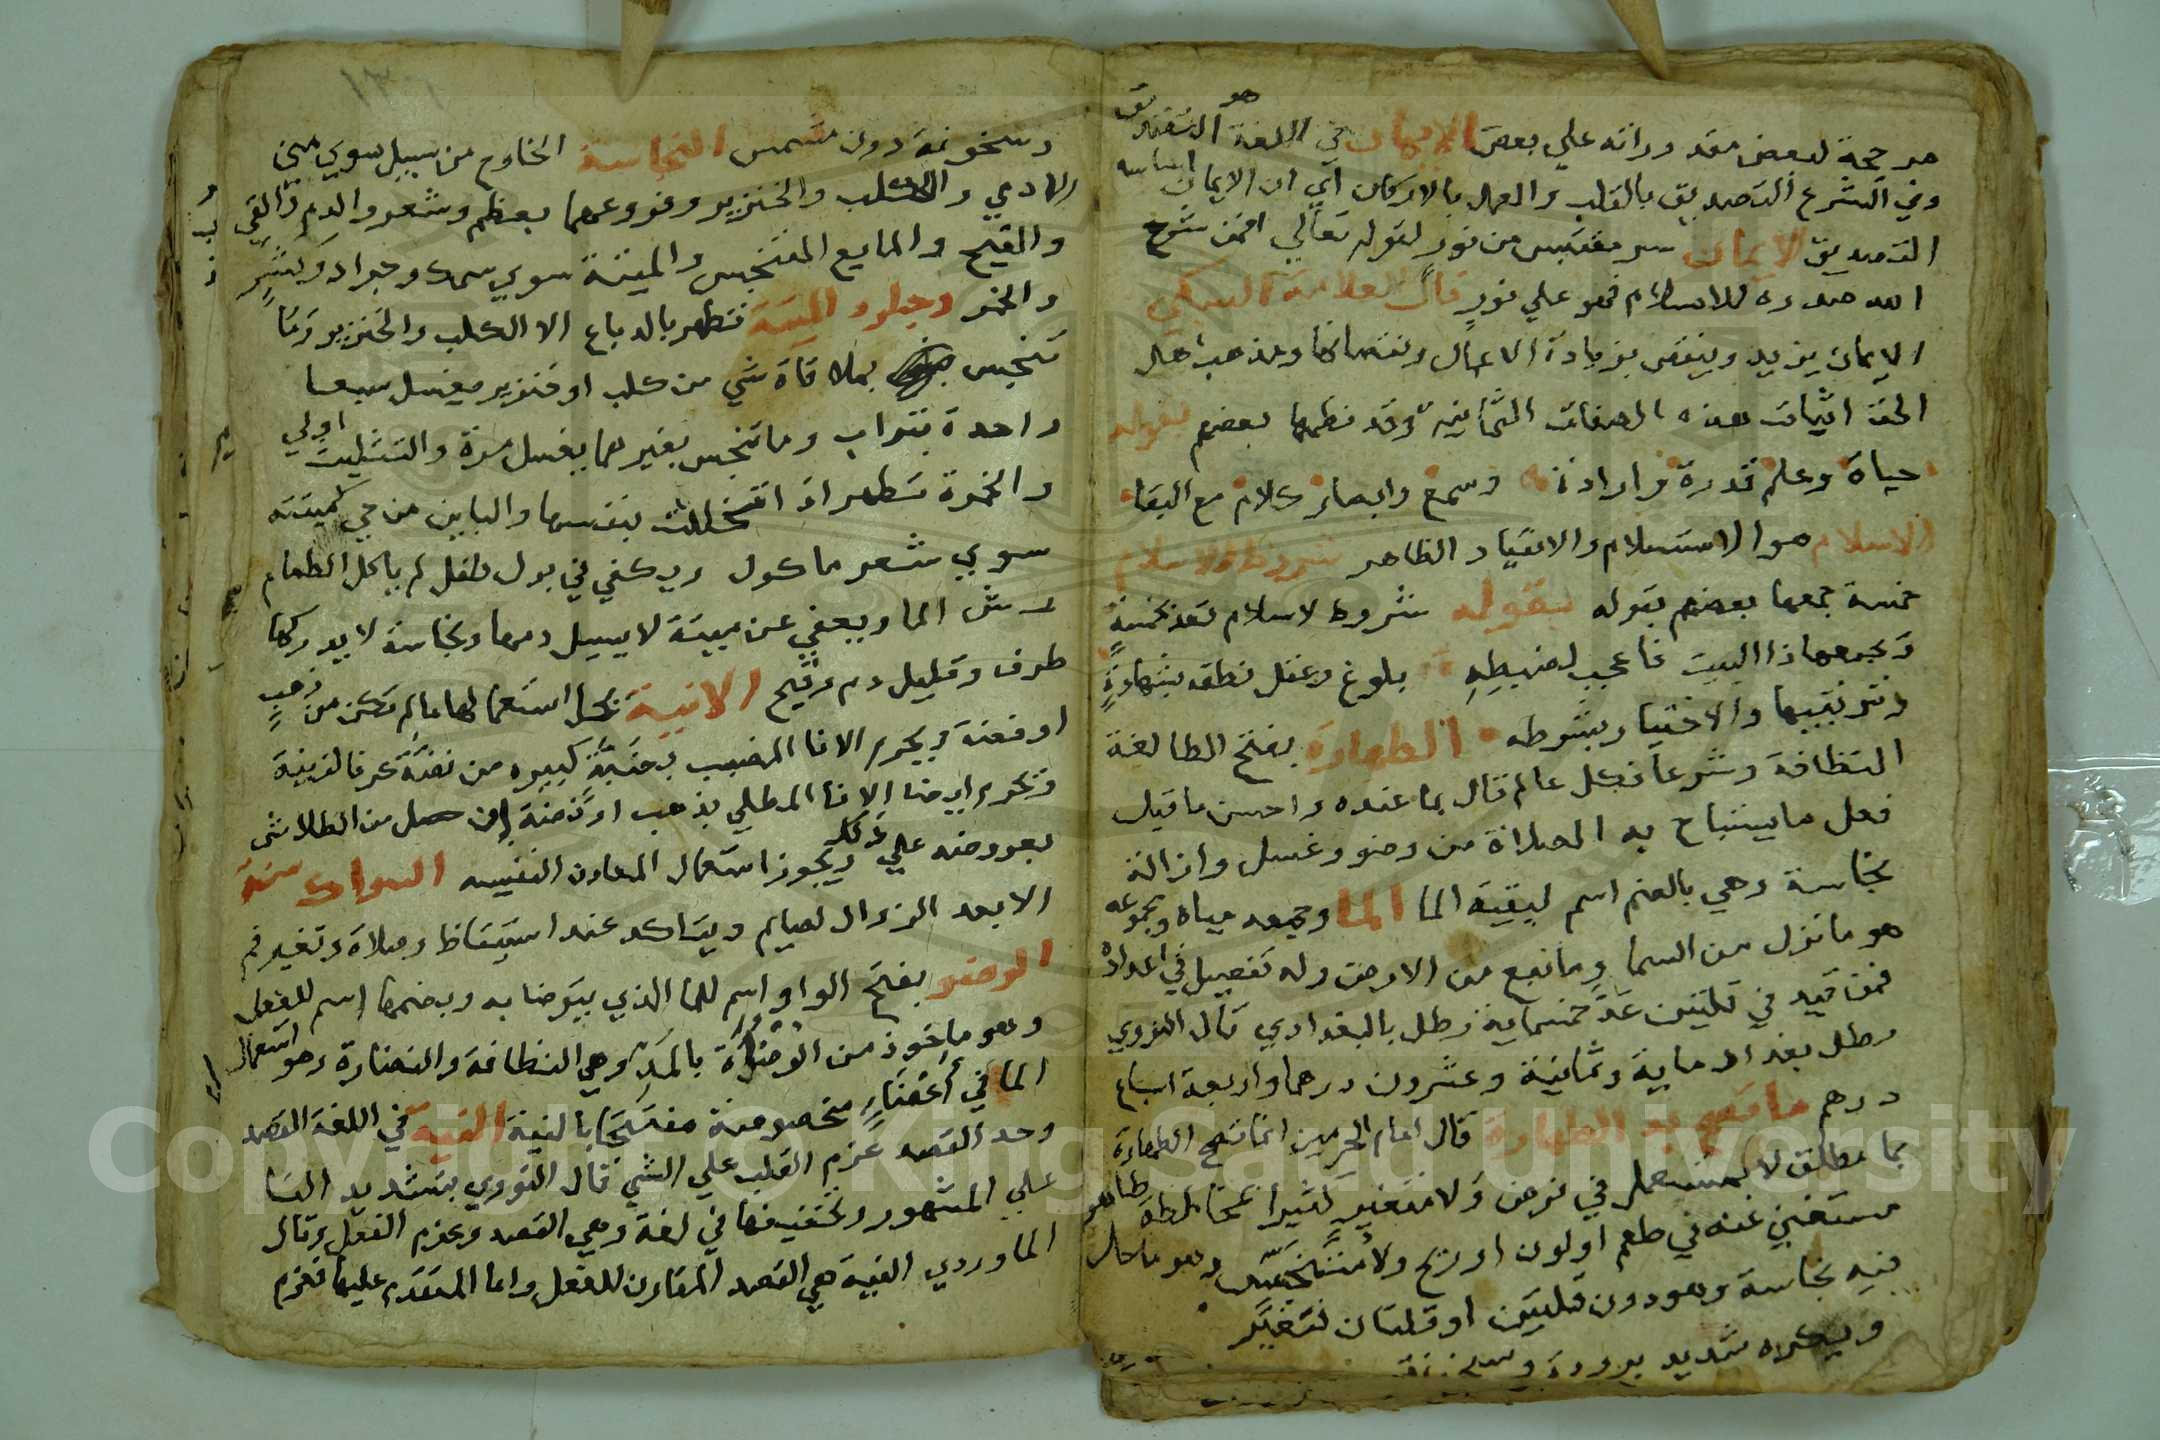 مرجحة لبعض مقدوراته علي بعض الايمان في اللغة هو التصديق
وفي الشرع التصديق بالقلب والعمل بالاركان اي ان الايمان اساسه
التصديق الايمان سر مقتبس من نور لقوله تعالي افمن شرح
الله صدره للاسلام فهو علي نور قال العلامة السبكي
الايمان يزيد وينقص بزيادة الاعمال ونقصانها ومذهب اهل
الحق اثبات هذه الصفات الثمانية وقد نظمها بعضهم بقوله
حياة وعلم قدرة وارادة وسمع وابصار كلام مع البقا
الاسلام هو الاستسلام والانقياد الظاهر شروط الاسلام
خمسة جمعها بعضهم بقوله بقوله شروط لاسلام تعد بخمسة
ويجمعها ذا البيت فاعجب لضبطه بلوغ وعقل نطقه بشهادة
وترتيبها والاختيار بشرطه الطهارة بفتح الطا لغة
النظافة وشرعا فكل عالم قال بما عنده واحسن ما قيل
فعل ما يستباح به الصلاة من وضو وغسل وازالة
نجاسة وهي بالضم اسم لبقية الما الما وجمعه مياه ومجموعه
هو ما نزل من السما وما نبع من الارض وله تفصيل في اعداده
فمن قيد في قلتين عد خمسماية رطل بالبغدادي قال النووي
رطل بغداد ماية وثمانية وعشرون درهما واربعة اسباع
درهم ما تصح به الطهارة قال امام الحرمين انما تصح الطهارة
بما مطلق لا بمستعمل في فرض ولا متغير كثيرا بمخالطة طاهر
مستغني عنه في طعم او لون او ريح ولا متنجس وهو ما حل
فيه نجاسة وهو دون قلتين او قلتان فتغير
ويكره شديد برودة وسخونة
وسخونة دون مشمس النجاسة الخارج من سبيل سوي مني
الادمي والكلب والخنزير وفروعهما بعظم وشعر والدم والقي
والقيح والمايع المتنجس والميتة سوي سمك وجراد وبشر
والخمر وجلود الميتة تطهر بالدباغ الا الكلب والخنزير وما
تنجس بملاقاة شي من كلب او خنزير يغسل سبعا
واحدة بتراب وما تنجس بغيرهما يغسل مرة والتثليث اولي
والخمرة تطهر اذا تخللت بنفسها والباين من حي كميتته
سوي شعر ماكول ويكفي في بول طفل لم ياكل الطعام
رش الما ويعفي عن ميتة لا يسيل دمها ونجاسة لا يدركها
طرف وقليل دم وقيح الانية يحل استعمالها ما لم تكن من ذهب
او فضة ويحرم الانا المضبب بضبة كبيرة من فضة عرفا لزينة
وتحرم ايضا الانا المطلي بذهب او فضة ان حصل من الطلا شي
بعرضه علي ذلك ويجوز استعمال المعادن النفيسه السواك سنة
الا بعد الزوال لصيام ويتاكد عند استيقاظ وصلاة وتغير فم
الوضو بفتح الواو اسم للما الذي يتوضا به وبضمها اسم للفعل
وهو ماخوذ من الوضاة بالمد وهي النظافة والنضارة وهو استعمال
الما في اعضا مخصوصة مفتتحا بالنية النية في اللغة القصد
وحد القصد عزم القلب علي الشي قال النووي بتشديد اليا
علي المشهور وتخفيفها في لغة وهي القصد وعزم الفعل وقال
الماوردي النية هي القصد المقارن للفعل واما المتقدم عليها فعزم
Copyright © King Saud University